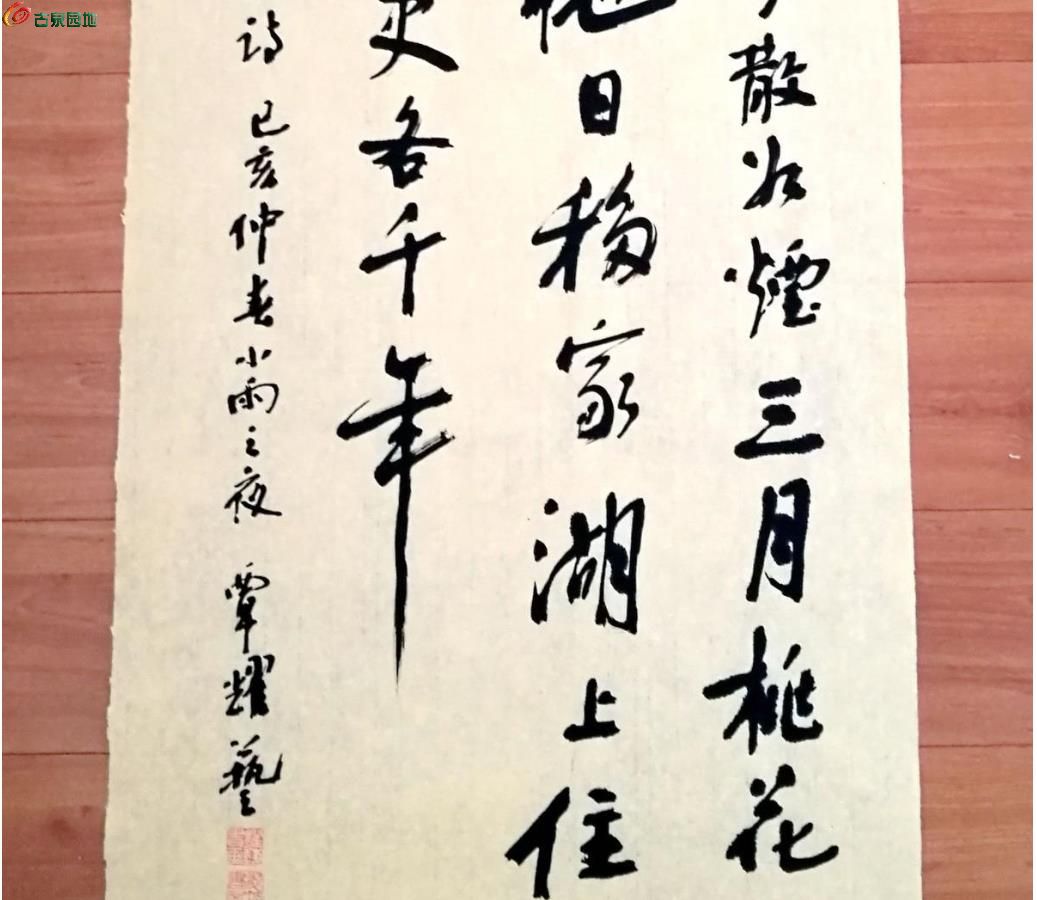 古泉园地
散如煙三月桃花
他日移家湖上住
各千年
詩 己亥仲春小雨之夜 覃耀藝